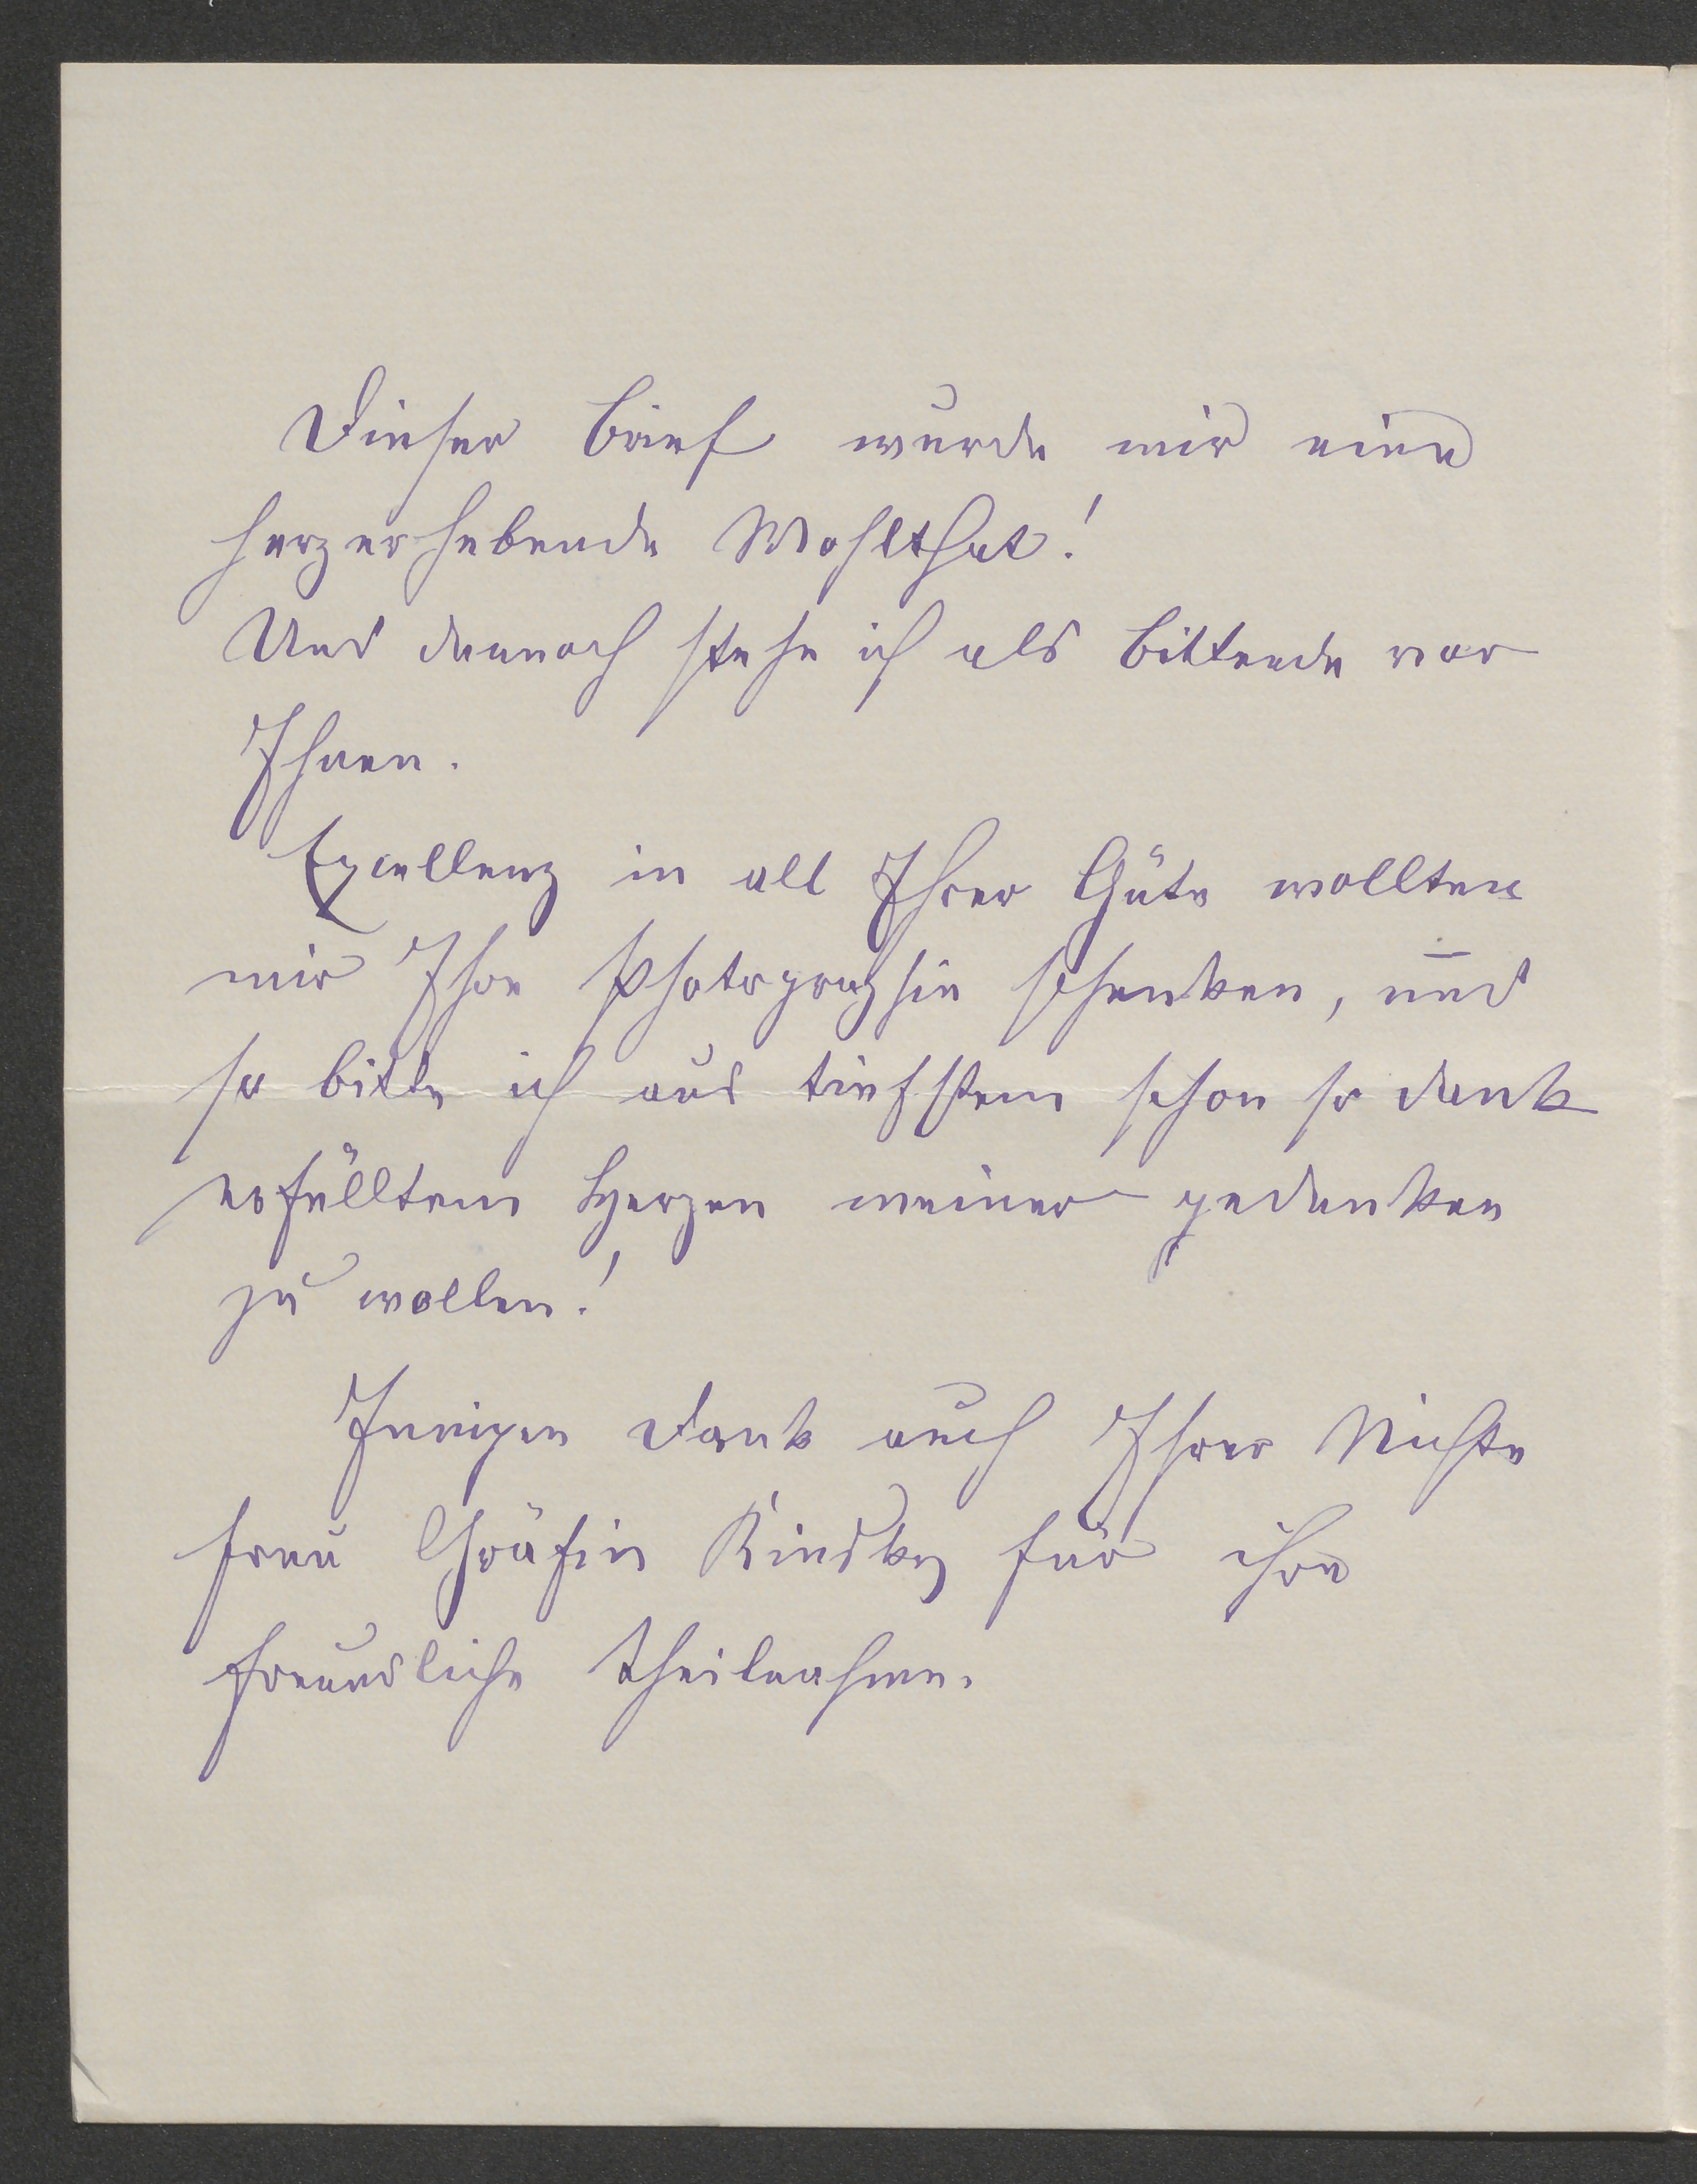 Dieser Brief wurde mir eine
herzerhebende Wohlthat!
Und dennoch stehe ich als Bittende vor
Ihnen.
Excellenz in all Ihrer Güte wollten
mir Ihre Photographie schenken, und
so bitte ich aus tiefstem schon so dank
erfülltem Herzen meiner gedenken
zu wollen!
Innigen Dank auch Ihrer Nichte
Frau Gräfin Kinsky für ihre
freundliche Theilnahme.